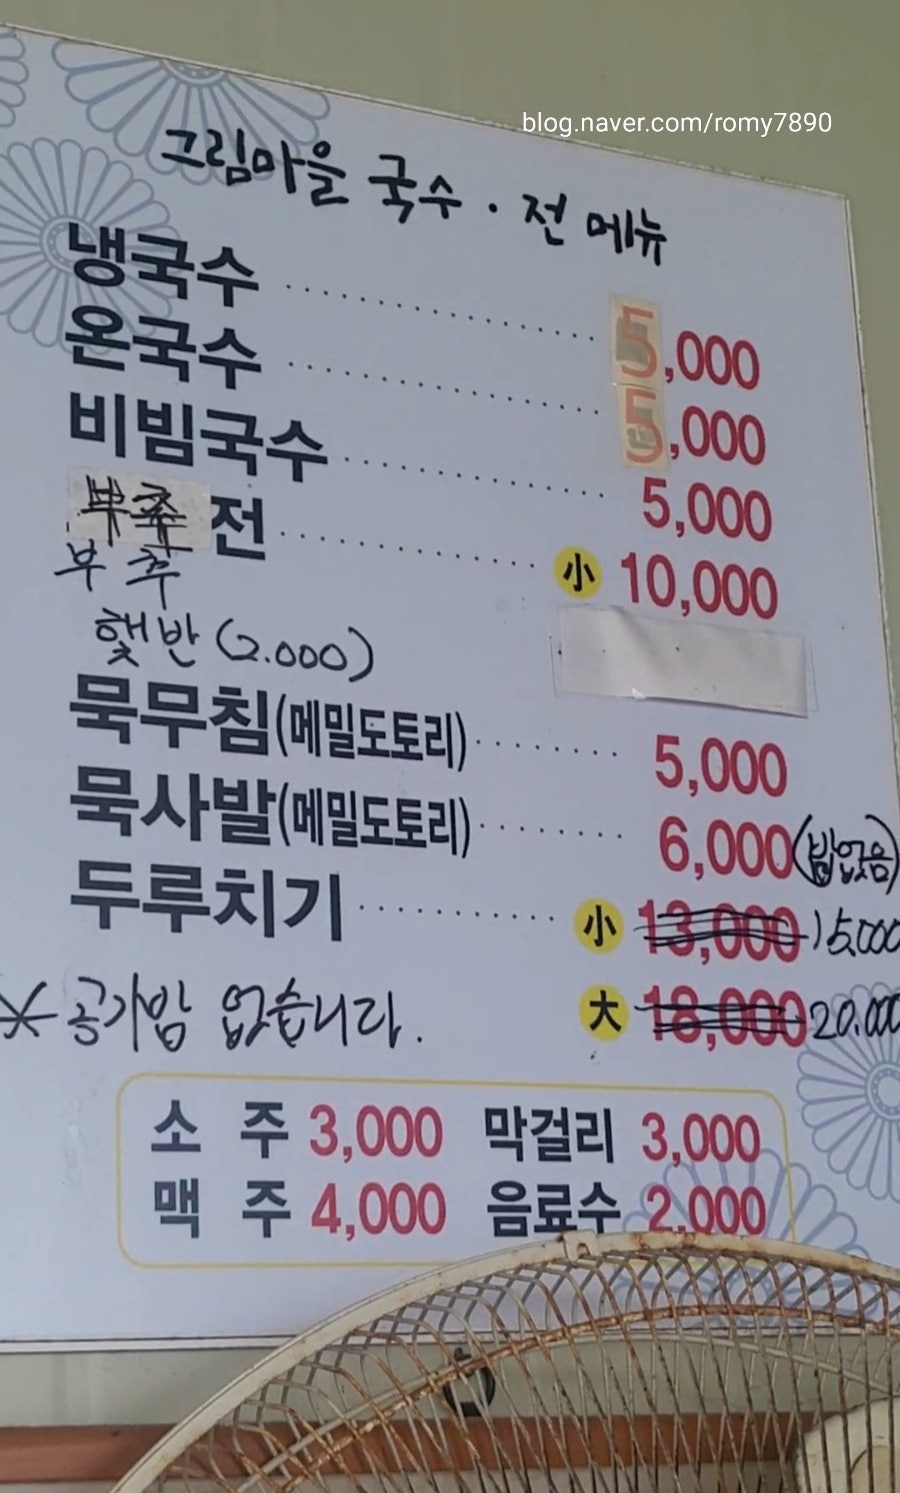 blog.naver.com/romy7890
그림마을 국수 · 전 메뉴
냉국수 5,000
온국수 5,000
비빔국수 5,000
부추 전 小 10,000
부추
햇반 (2.000)
묵무침(메밀도토리) 5,000
묵사발(메밀도토리) 6,000 (밥없음)
두루치기 小 13,000 15.000
大 18,000 20.000
* 공기밥 없습니다.
소 주 3,000 막걸리 3,000
맥 주 4,000 음료수 2,000